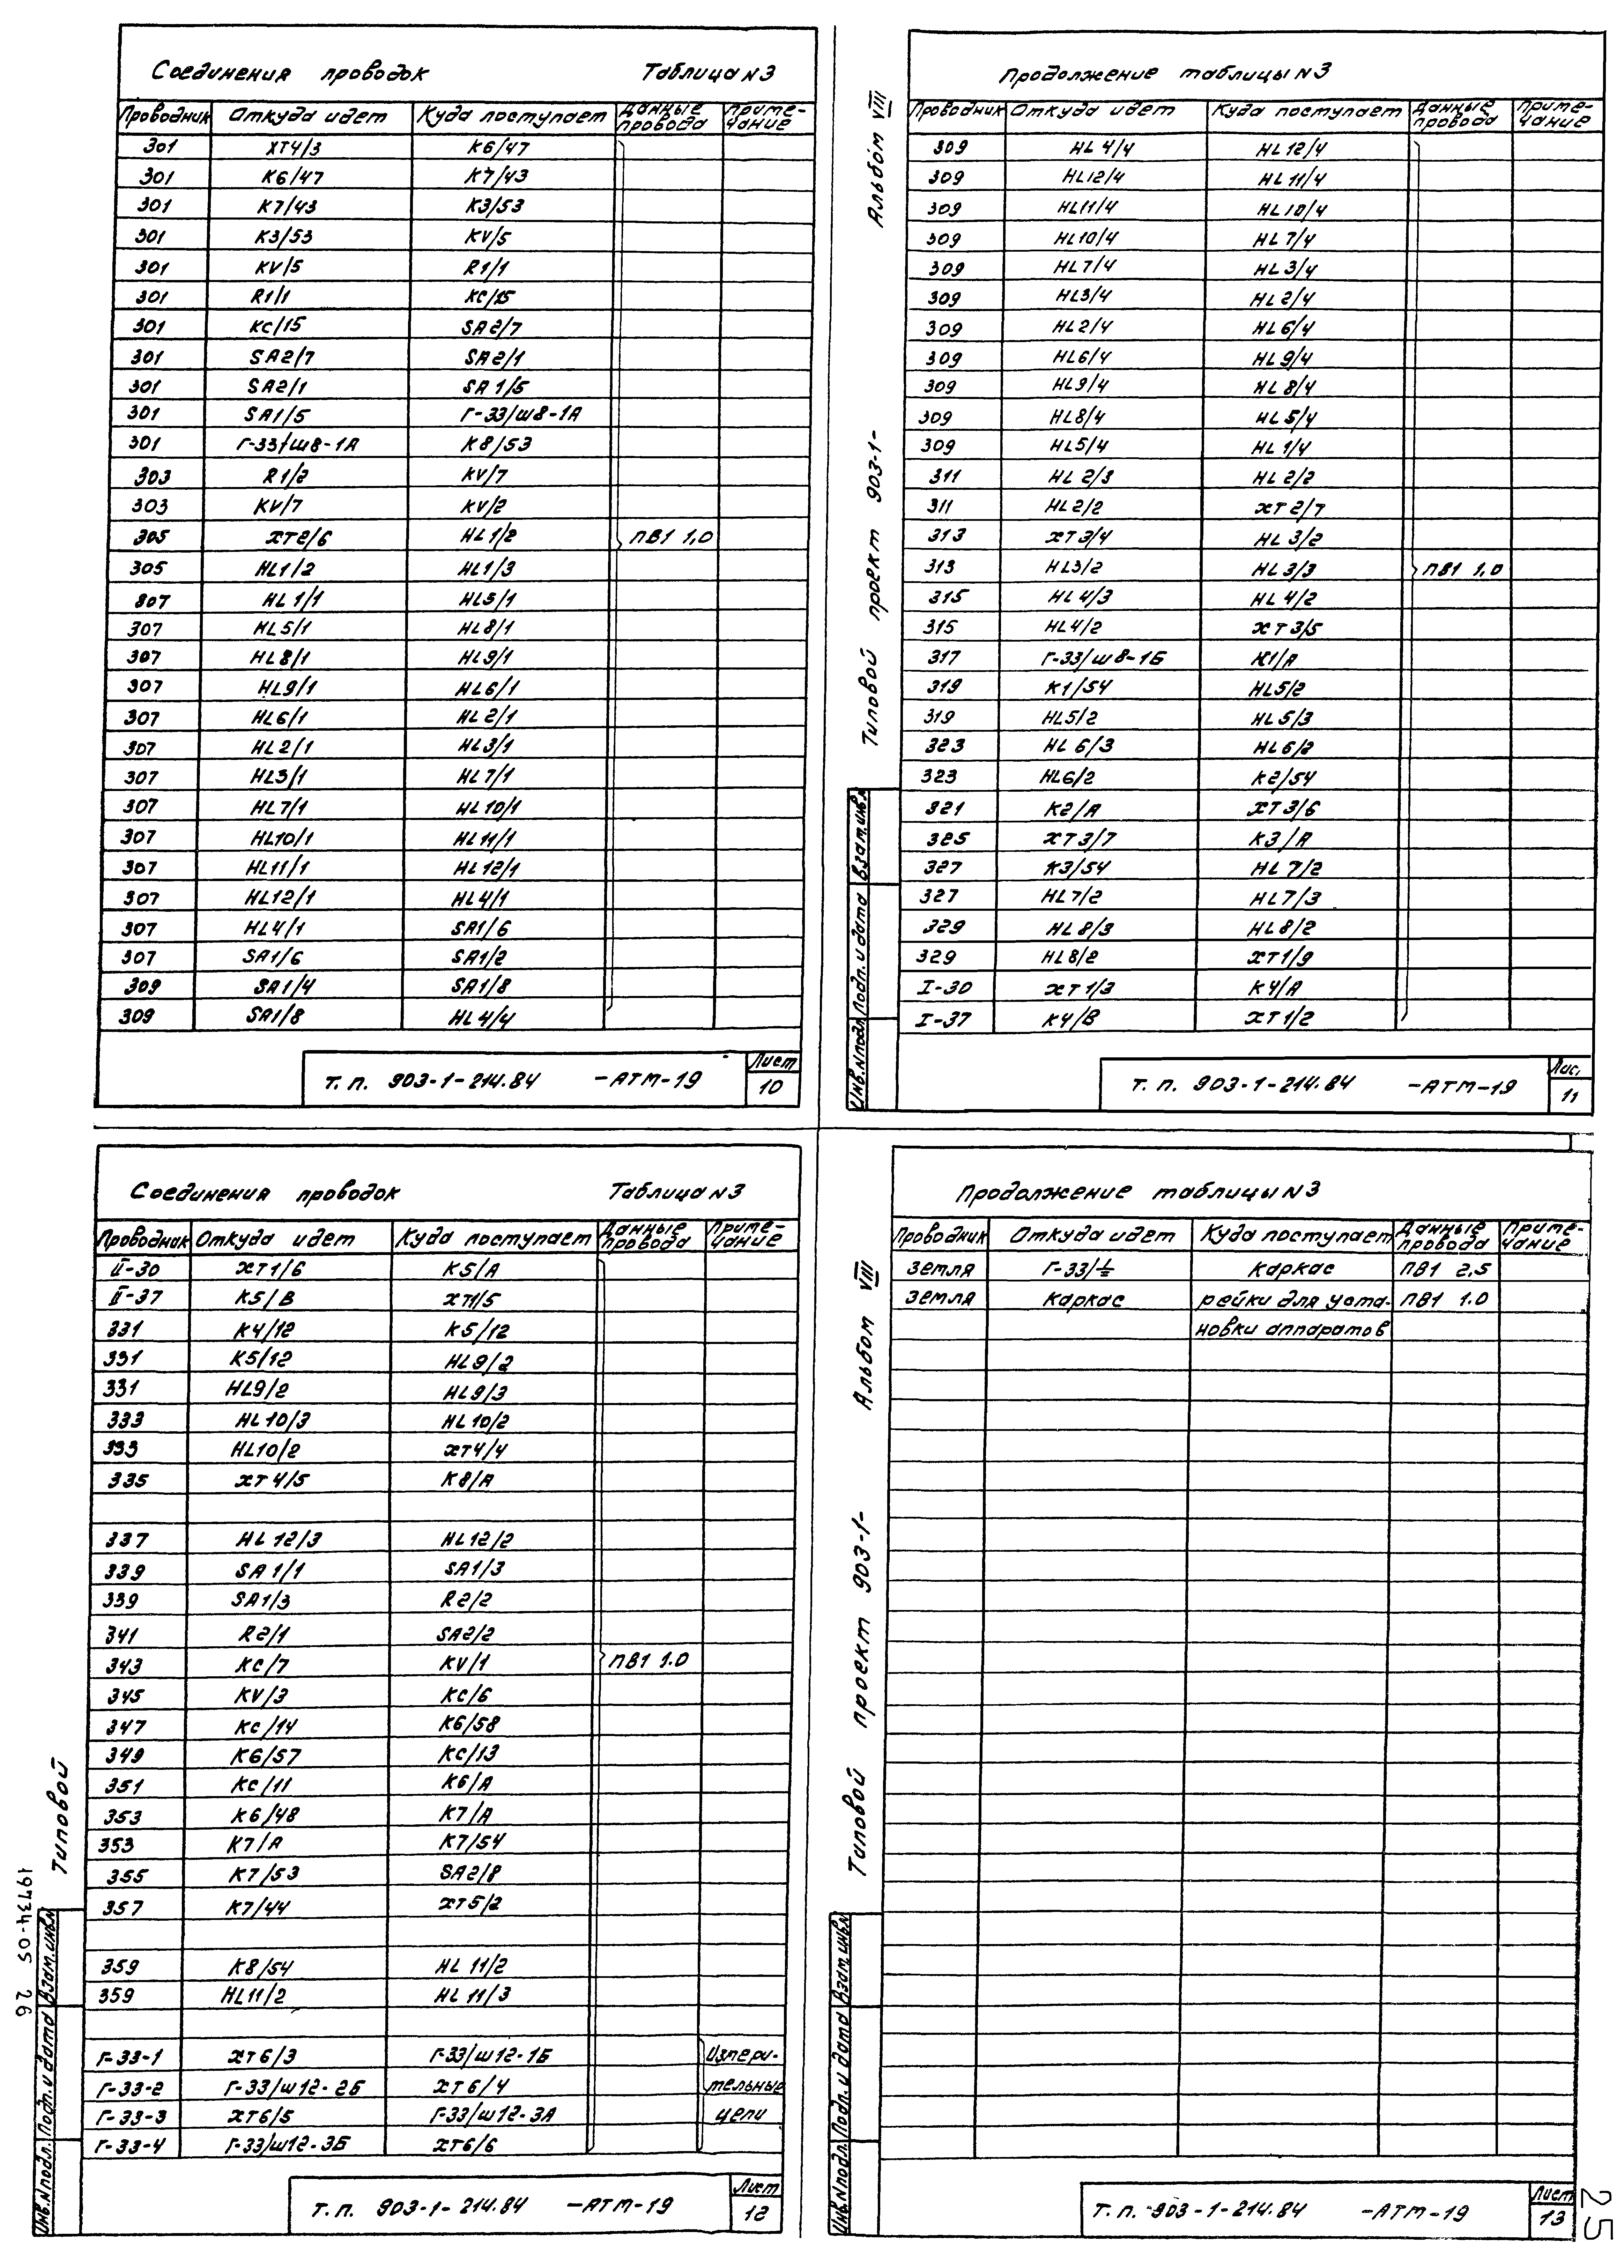 Соединения проводок Таблица N3
Проводник Откуда идет Куда поступает Данные провода Приме-чание
301 XT4/3 K6/47
301 K6/47 K7/43
301 K7/43 K3/53
301 K3/53 KV/5
301 KV/5 R1/1
301 R1/1 KC/15
301 KC/15 SA2/7
301 SA2/7 SA2/1
301 SA2/1 SA1/5
301 SA1/5 Г-33/ш8-1А
301 Г-33/ш8-1А K8/53
303 R1/2 KV/7
303 KV/7 KV/2
305 XT2/6 HL1/2 ПВ1 1,0
305 HL1/2 HL1/3
307 HL1/1 HL5/1
307 HL5/1 HL8/1
307 HL8/1 HL9/1
307 HL9/1 HL6/1
307 HL6/1 HL2/1
307 HL2/1 HL3/1
307 HL3/1 HL7/1
307 HL7/1 HL10/1
307 HL10/1 HL11/1
307 HL11/1 HL12/1
307 HL12/1 HL4/1
307 HL4/1 SA1/6
307 SA1/6 SA1/2
309 SA1/4 SA1/8
309 SA1/8 HL4/4
Т.п. 903-1-214.84 -АТМ-19 Лист 10
Альбом VIII
Типовой проект 903-1-
Продолжение таблицы N3
Проводник Откуда идет Куда поступает Данные провода Приме-чание
309 HL4/4 HL12/4
309 HL12/4 HL11/4
309 HL11/4 HL10/4
309 HL10/4 HL7/4
309 HL7/4 HL3/4
309 HL3/4 HL2/4
309 HL2/4 HL6/4
309 HL6/4 HL9/4
309 HL9/4 HL8/4
309 HL8/4 HL5/4
309 HL5/4 HL1/4
311 HL2/3 HL2/2
311 HL2/2 XT2/7
313 XT3/4 HL3/2
313 HL3/2 HL3/3 ПВ1 1,0
315 HL4/3 HL4/2
315 HL4/2 XT3/5
317 Г-33/ш8-1Б K1/A
319 K1/54 HL5/2
319 HL5/2 HL5/3
323 HL6/3 HL6/2
323 HL6/2 K2/54
321 K2/A XT3/6
325 XT3/7 K3/A
327 K3/54 HL7/2
327 HL7/2 HL7/3
329 HL8/3 HL8/2
329 HL8/2 XT1/9
I-30 XT1/3 K4/A
I-37 K4/B XT1/2
Инв.N подл. Подп. и дата Взам.инв.N
Т.п. 903-1-214.84 -АТМ-19 Лис. 11
Соединения проводок Таблица N3
Проводник Откуда идет Куда поступает Данные провода Приме-чание
II-30 XT1/6 K5/A
II-37 K5/B XT1/5
331 K4/12 K5/12
331 K5/12 HL9/2
331 HL9/2 HL9/3
333 HL10/3 HL10/2
333 HL10/2 XT4/4
335 XT4/5 K8/A
337 HL12/3 HL12/2
339 SA1/1 SA1/3
339 SA1/3 R2/2
341 R2/1 SA2/2
343 KC/7 KV/1 ПВ1 1.0
345 KV/3 KC/6
347 KC/14 K6/58
349 K6/57 KC/13
351 KC/11 K6/A
353 K6/48 K7/A
353 K7/A K7/54
355 K7/53 SA2/8
357 K7/44 XT5/2
359 K8/54 HL11/2
359 HL11/2 HL11/3
Г-33-1 XT6/3 Г-33/ш12-1Б Измери-
Г-33-2 Г-33/ш12-2Б XT6/4 тельные
Г-33-3 XT6/5 Г-33/ш12-3А цепи
Г-33-4 Г-33/ш12-3Б XT6/6
Типовой
19734-05 26
Инв.N подл. Подп. и дата Взам.инв.N
Т.п. 903-1-214.84 -АТМ-19 Лист 12
Альбом VIII
Типовой проект 903-1-
Продолжение таблицы N3
Проводник Откуда идет Куда поступает Данные провода Приме-чание
земля Г-33/⏚ каркас ПВ1 2,5
земля каркас рейки для уста- ПВ1 1.0
новки аппаратов
Инв.N подл. Подп. и дата Взам.инв.N
Т.п. 903-1-214.84 -АТМ-19 Лист 13
25